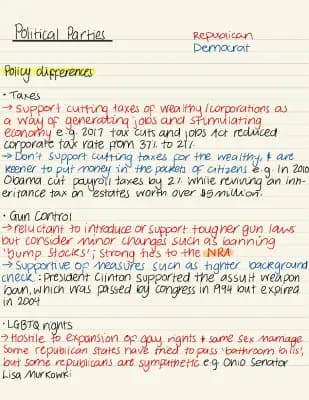 Political Parties
Republican
Democrat
Policy differences
• Taxes
→ Support cutting taxes of wealthy/corporations as
a way of generating jobs and stimulating
economy e.g. 2017 tax cuts and jobs Act reduced
corporate tax rate from 37% to 21%
→ Don't support cutting taxes for the wealthy, & are
keener to put money in the pocket of citizens e.g. In 2010
Obama cut payroll taxes by 2% while reviving an inh-
eritance tax on estates worth over $5 million.
• Gun Control
→ reluctant to introduce or support tougher gun laws
but consider minor changes such as banning
'bump stocks'; strong ties to the NRA
→ Supportive of measures such as tighter background
check: President Clinton supported the assault weapon
ban, which was passed by congress in 1994 but expired
in 2004
• LGBTQ rights
→ Hostile to expansion of gay rights & same sex marriage
Some republican states have tried to pass 'bathroom bills',
but some republicans are sympathetic e.g. Ohio Senator
Lisa Murkowki